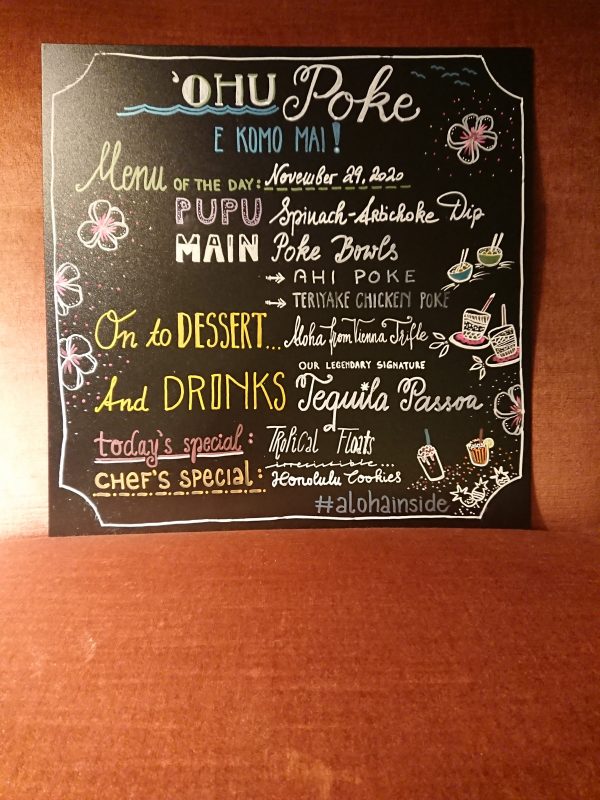 'OHU Poke
E KOMO MAI!
Menu OF THE DAY: November 29, 2020
PUPU Spinach-Artichoke Dip
MAIN Poke Bowls
→ AHI POKE
→ TERIYAKE CHICKEN POKE
On to DESSERT... Aloha from Vienna Trifle
OUR LEGENDARY SIGNATURE
And DRINKS Tequila Passoa
today's special: Tropical Floats
irresistible
CHEF'S SPECIAL: Honolulu Cookies
#alohainside